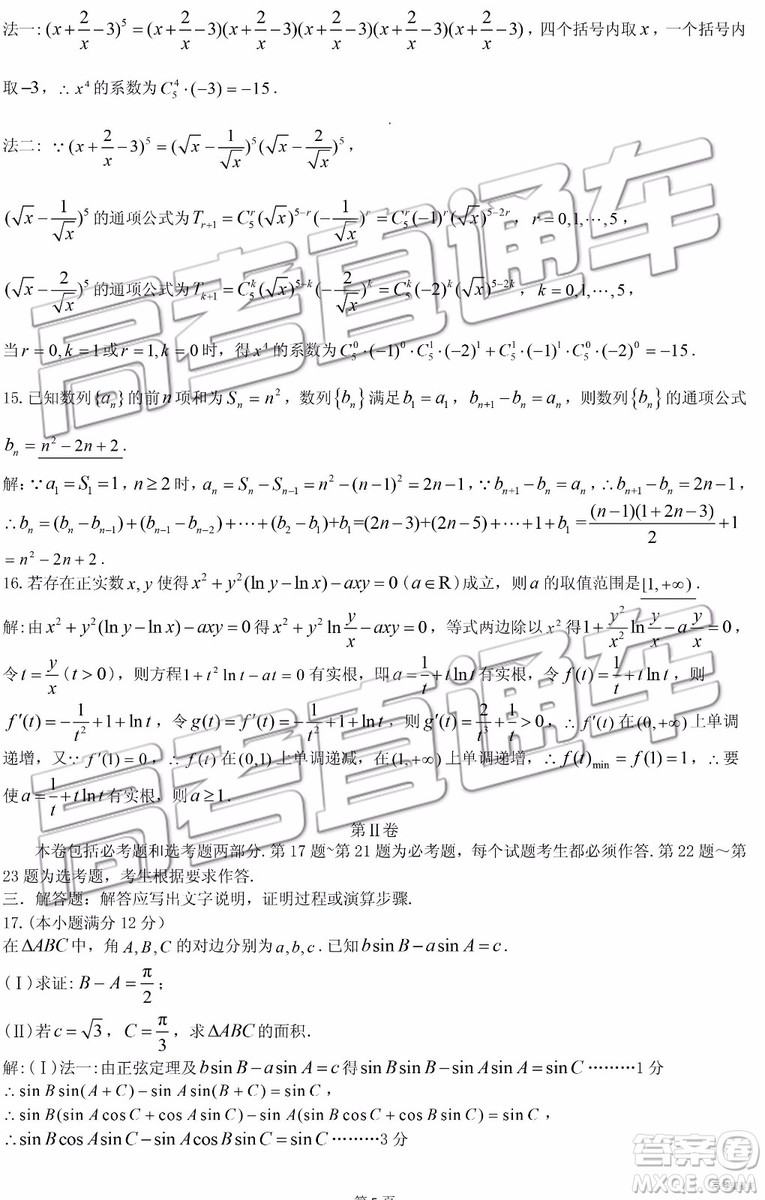 法一:(x+2/x-3)^5=(x+2/x-3)(x+2/x-3)(x+2/x-3)(x+2/x-3)(x+2/x-3)，四个括号内取x，一个括号内
取-3，∴x^4的系数为C_5^4·(-3)=-15．
法二: ∵(x+2/x-3)^5=(√x-1/√x)^5(√x-2/√x)^5，
(√x-1/√x)^5的通项公式为T_{r+1}=C_5^r(√x)^{5-r}(-1/√x)^r=C_5^r(-1)^r(√x)^{5-2r}，r=0,1,⋯,5，
(√x-2/√x)^5的通项公式为T_{k+1}=C_5^k(√x)^{5-k}(-2/√x)^k=C_5^k(-2)^k(√x)^{5-2k}，k=0,1,⋯,5，
当r=0,k=1或r=1,k=0时，得x^4的系数为C_5^0·(-1)^0·C_5^1·(-2)^1+C_5^1·(-1)^1·C_5^0·(-2)^0=-15．
15.已知数列{a_n}的前n项和为S_n=n^2，数列{b_n}满足b_1=a_1，b_{n+1}-b_n=a_n，则数列{b_n}的通项公式
b_n=n^2-2n+2．
解:∵a_1=S_1=1,n≥2时，a_n=S_n-S_{n-1}=n^2-(n-1)^2=2n-1，∵b_{n+1}-b_n=a_n，∴b_{n+1}-b_n=2n-1，
∴b_n=(b_n-b_{n-1})+(b_{n-1}-b_{n-2})+⋯+(b_2-b_1)+b_1=(2n-3)+(2n-5)+⋯+1+b_1=(n-1)(1+2n-3)/2+1
=n^2-2n+2．
16.若存在正实数x,y使得x^2+y^2(ln y-ln x)-axy=0(a∈R)成立，则a的取值范围是[1,+∞)．
解:由x^2+y^2(ln y-ln x)-axy=0得x^2+y^2ln y/x-axy=0，等式两边除以x^2得1+y^2/x^2 ln y/x-a y/x=0，
令t=y/x(t>0)，则方程1+t^2 ln t-at=0有实根，即a=1/t+t ln t有实根，令f(t)=1/t+t ln t，则
f′(t)=-1/t^2+1+ln t，令g(t)=f′(t)=-1/t^2+1+ln t，则g′(t)=2/t^3+1/t>0，∴f′(t)在(0,+∞)上单调
递增，又∵f′(1)=0，∴f(t)在(0,1)上单调递减，在(1,+∞)上单调递增，∴f(t)_min=f(1)=1，∴要
使a=1/t+t ln t有实根，则a≥1．
第Ⅱ卷
本卷包括必考题和选考题两部分.第17题~第21题为必考题，每个试题考生都必须作答.第22题～第
23题为选考题，考生根据要求作答.
三．解答题：解答应写出文字说明，证明过程或演算步骤.
17.(本小题满分12分)
在ΔABC中，角A,B,C的对边分别为a,b,c．已知bsin B-asin A=c．
(Ⅰ)求证:B-A=π/2；
(Ⅱ)若c=√3，C=π/3，求ΔABC的面积．
解:(Ⅰ)法一:由正弦定理及bsin B-asin A=c得sin Bsin B-sin Asin A=sin C ………1分
∴sin Bsin(A+C)-sin Asin(B+C)=sin C，
∴sin B(sin Acos C+cos Asin C)-sin A(sin Bcos C+cos Bsin C)=sin C，
∴sin Bcos Asin C-sin Acos Bsin C=sin C ………3分
第5页
高考直通车
高考直通车
高考直通车
答案圈
MXQE.COM